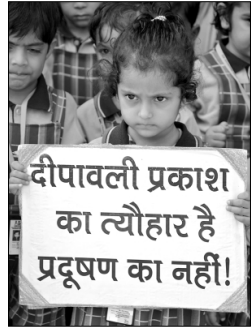 दीपावली प्रकाश
का त्यौहार है
प्रदूषण का नहीं!